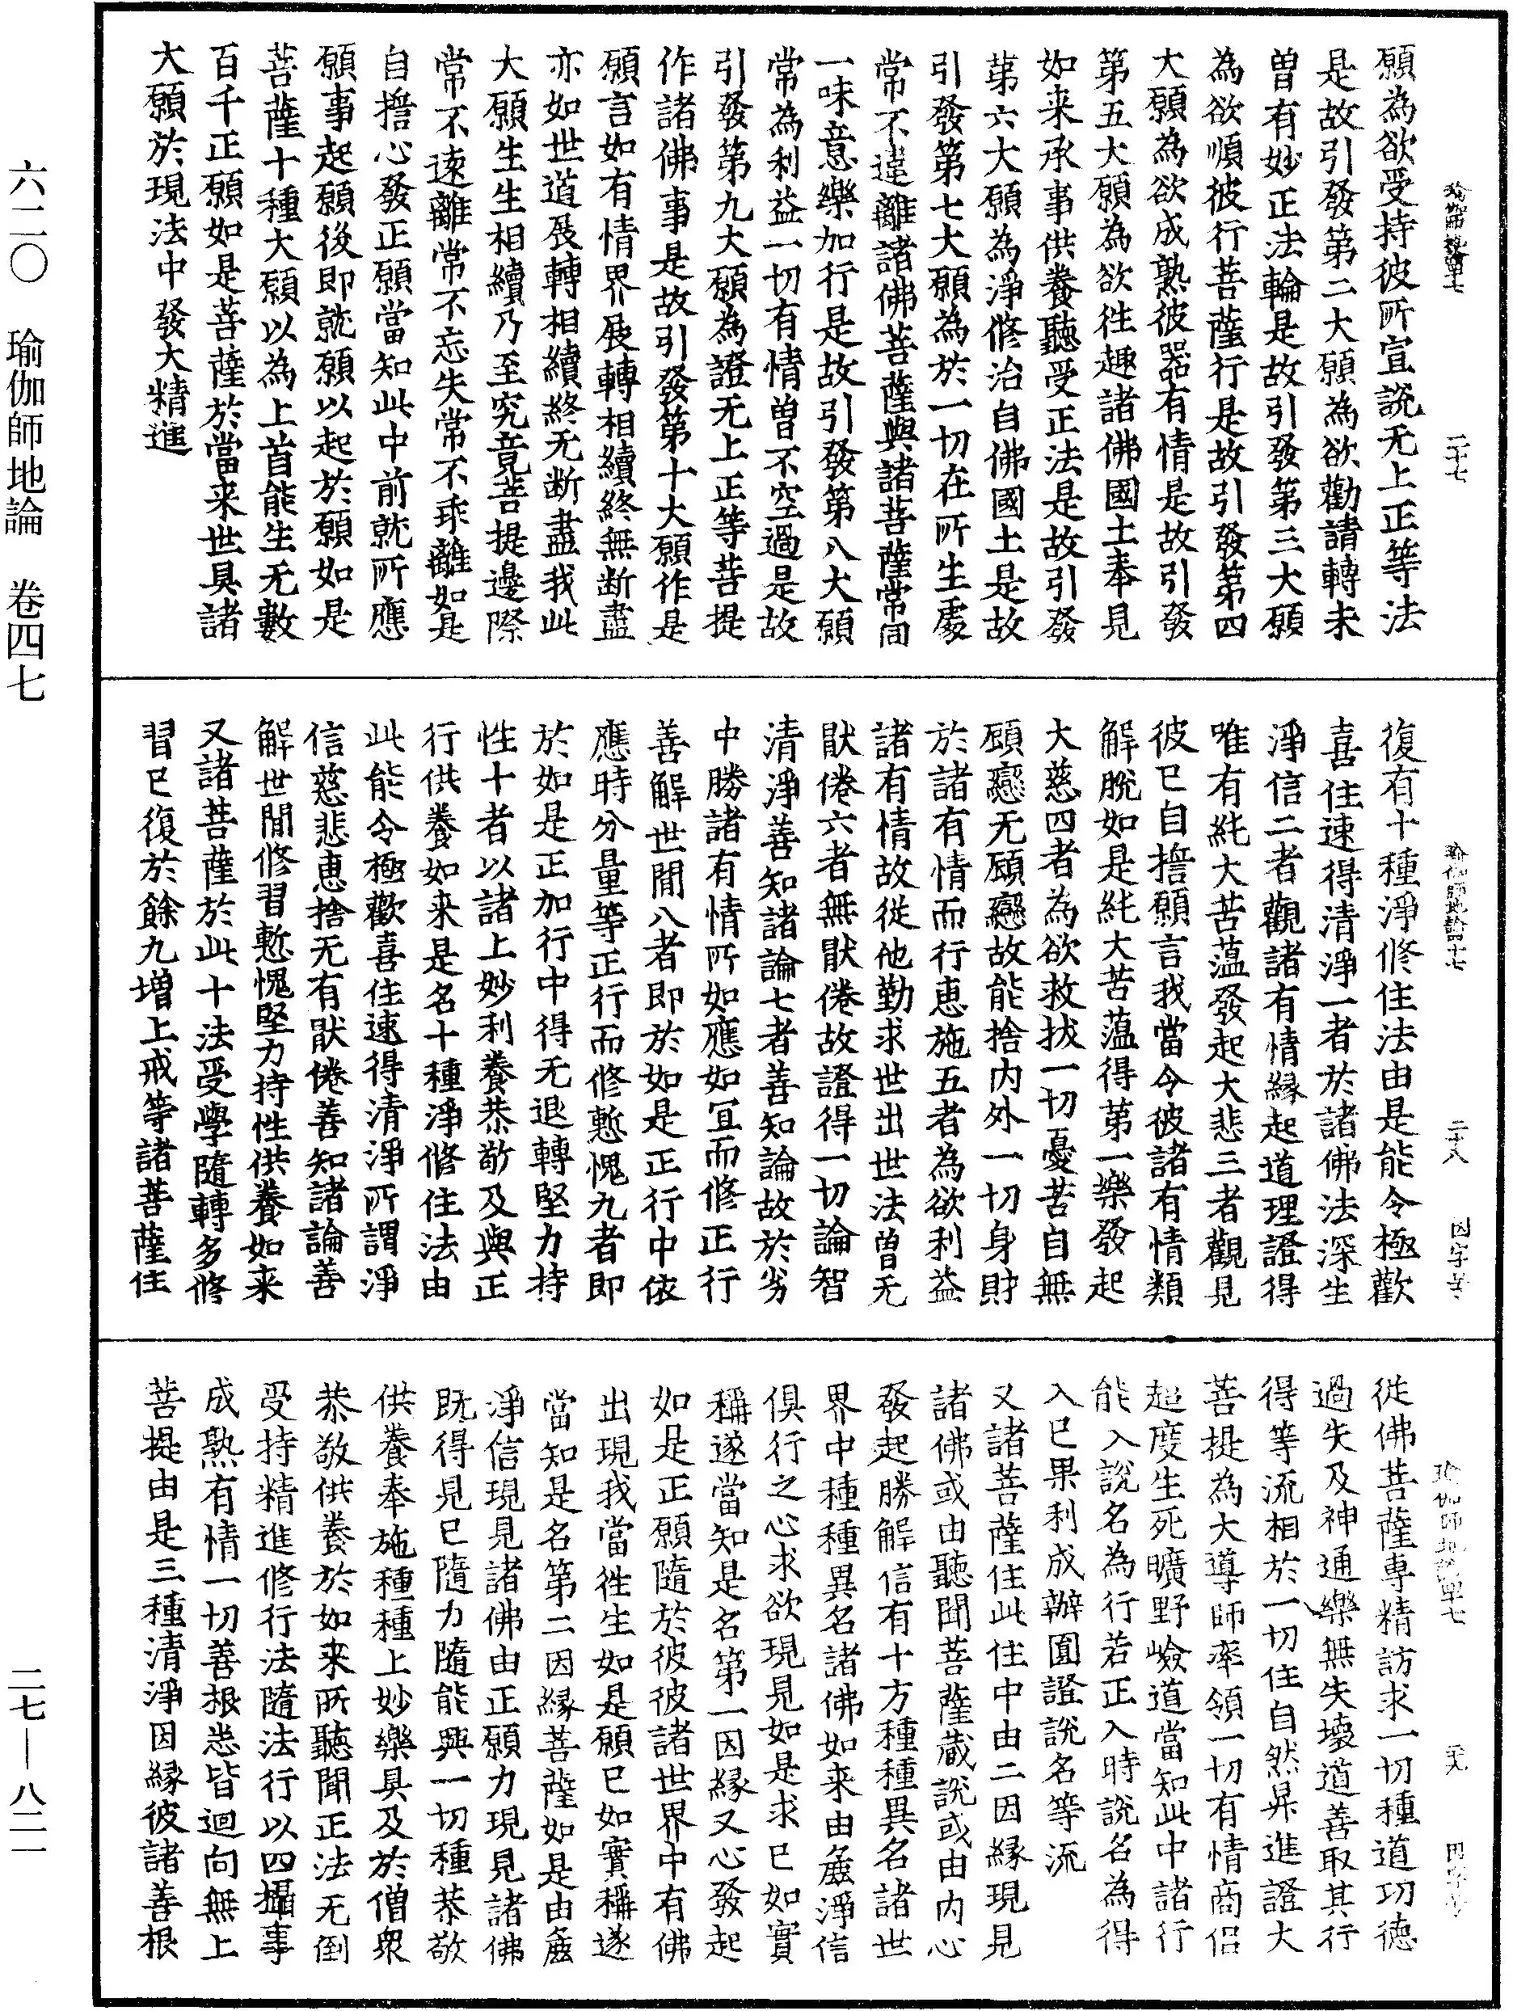 願為欲受持彼所宣說无上正等法
是故引發第二大願為欲勸請轉未
曾有妙正法輪是故引發第三大願
為欲順彼行菩薩行是故引發第四
大願為欲成熟彼器有情是故引發
第五大願為欲往趣諸佛國土奉見
如来承事供養聽受正法是故引發
第六大願為淨修治自佛國土是故
引發第七大願為於一切在所生處
常不違離諸佛菩薩與諸菩薩常同
一味意樂加行是故引發第八大願
常為利益一切有情曾不空過是故
引發第九大願為證无上正等菩提
作諸佛事是故引發第十大願作是
願言如有情界展轉相續終無断盡
亦如世道展轉相續終无断盡我此
大願生生相續乃至究竟菩提邊際
常不遠離常不忘失常不乖離如是
自擔心發正願當知此中前就所應
願事起願後即就願以起於願如是
菩薩十種大願以為上首能生无數
百千正願如是菩薩於當来世具諸
大願於現法中發大精進
復有十種淨修住法由是能令極歡
喜住速得清淨一者於諸佛法深生
淨信二者觀諸有情緣起道理證得
唯有純大苦蕴發起大悲三者觀見
彼已自擔願言我當令彼諸有情類
解脫如是純大苦蕴得第一樂發起
大慈四者為欲救拔一切憂苦自無
顧戀无顧戀故能捨內外一切身財
於諸有情而行惠施五者為欲利益
諸有情故從他勤求世出世法曾无
猒倦六者無猒倦故證得一切論智
清淨善知諸論七者善知論故於劣
中勝諸有情所如應如冝而修正行
善解世間八者即於如是正行中依
應時分量等正行而修慙愧九者即
於如是正加行中得无退轉堅力持
性十者以諸上妙利養恭敬及與正
行供養如来是名十種淨修住法由
此能令極歡喜住速得清淨所謂淨
信慈悲惠捨无有猒倦善知諸論善
解世間修習慙愧堅力持性供養如来
又諸菩薩於此十法受學隨轉多修
習已復於餘九增上戒等諸菩薩住
從佛菩薩專精訪求一切種道功德
過失及神通樂無失壞道善取其行
得等流相於一切住自然昇進證大
菩提為大導師率領一切有情商侶
超度生死曠野嶮道當知此中諸行
能入說名為行若正入時說名為得
入已果利成辦圎證說名等流
又諸菩薩住此住中由二因緣現見
諸佛或由聽聞菩薩蔵說或由內心
發起勝解信有十方種種異名諸世
界中種種異名諸佛如来由麁淨信
俱行之心求欲現見如是求已如實
稱遂當知是名第一因緣又心發起
如是正願隨於彼彼諸世界中有佛
出現我當往生如是願已如實稱遂
當知是名第二因緣菩薩如是由麁
淨信現見諸佛由正願力現見諸佛
既得見已隨力隨能興一切種恭敬
供養奉施種種上妙樂具及於僧衆
恭敬供養於如来所聽聞正法无倒
受持精進修行法隨法行以四攝事
成熟有情一切善根悉皆迴向無上
菩提由是三種清淨因緣彼諸善根
六二〇　瑜伽師地論　卷四七
二七—八二一